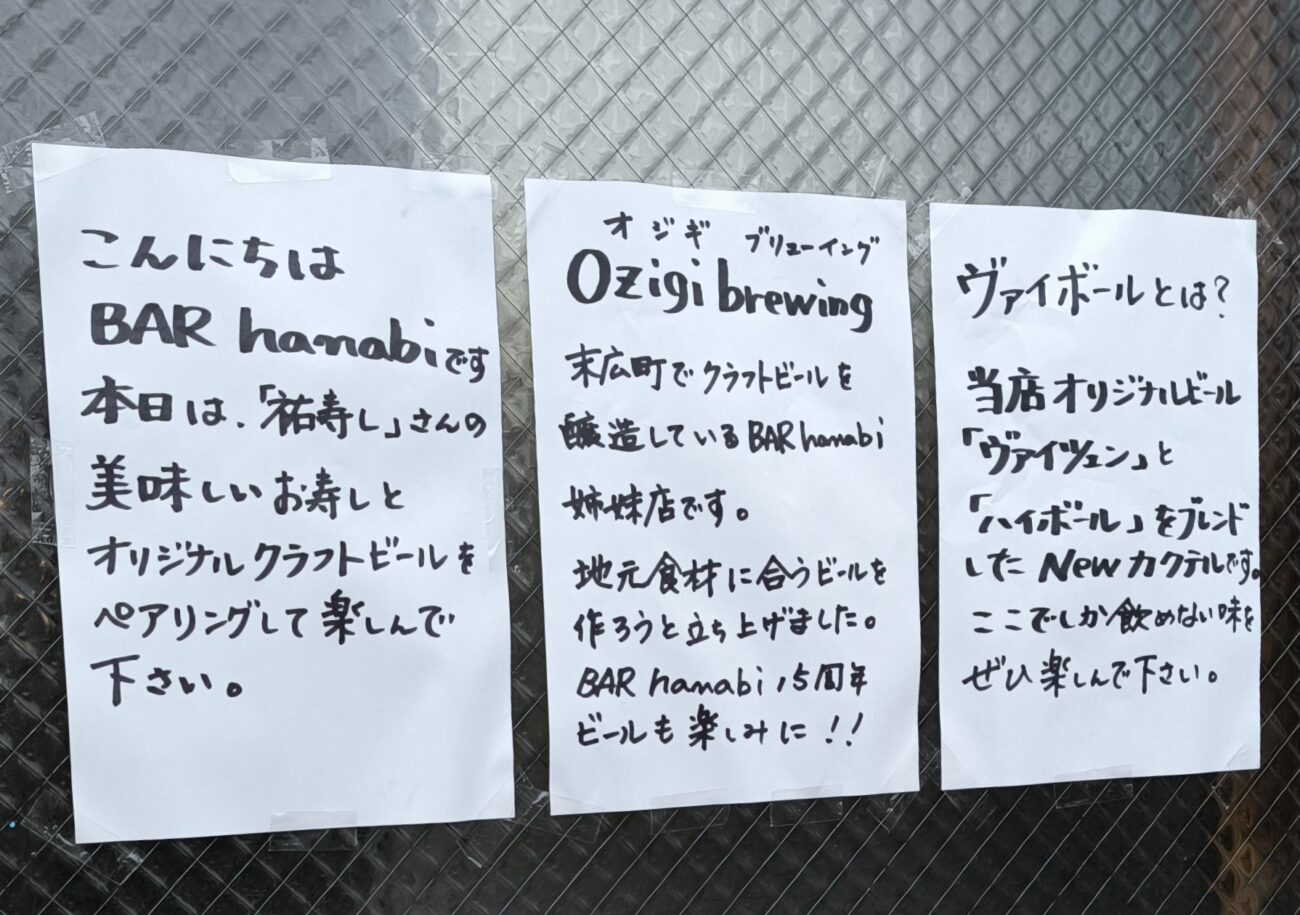 こんにちは
BAR hanabiです
本日は、「祐寿し」さんの
美味しいお寿しと
オリジナルクラフトビールを
ペアリングして楽しんで
下さい。
オジギ ブリューイング
Ozigi brewing
末広町でクラフトビールを
醸造しているBAR hanabi
姉妹店です。
地元食材に合うビールを
作ろうと立ち上げました。
BAR hanabi 15周年
ビールも楽しみに!!
ヴァイボールとは?
当店オリジナルビール
「ヴァイツェン」と
「ハイボール」をブレンド
した Newカクテルです。
ここでしか飲めない味を
ぜひ楽しんで下さい。